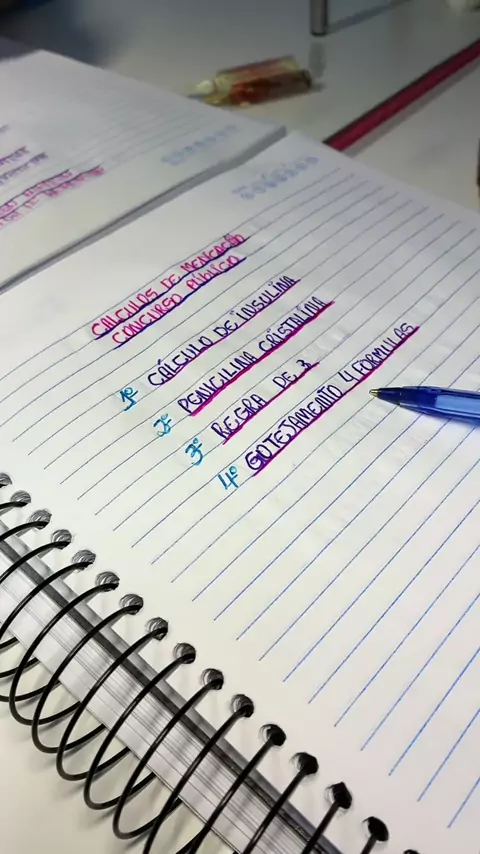 CALCULOS DE MENICAÇÃO
CONCURSO PÚBLICO
1º CÁLCULO DE INSULINA
2º PENICILINA CRISTALINA
3º REGRA DE 3
4º GOTEJAMENTO 4 FÓRMULAS